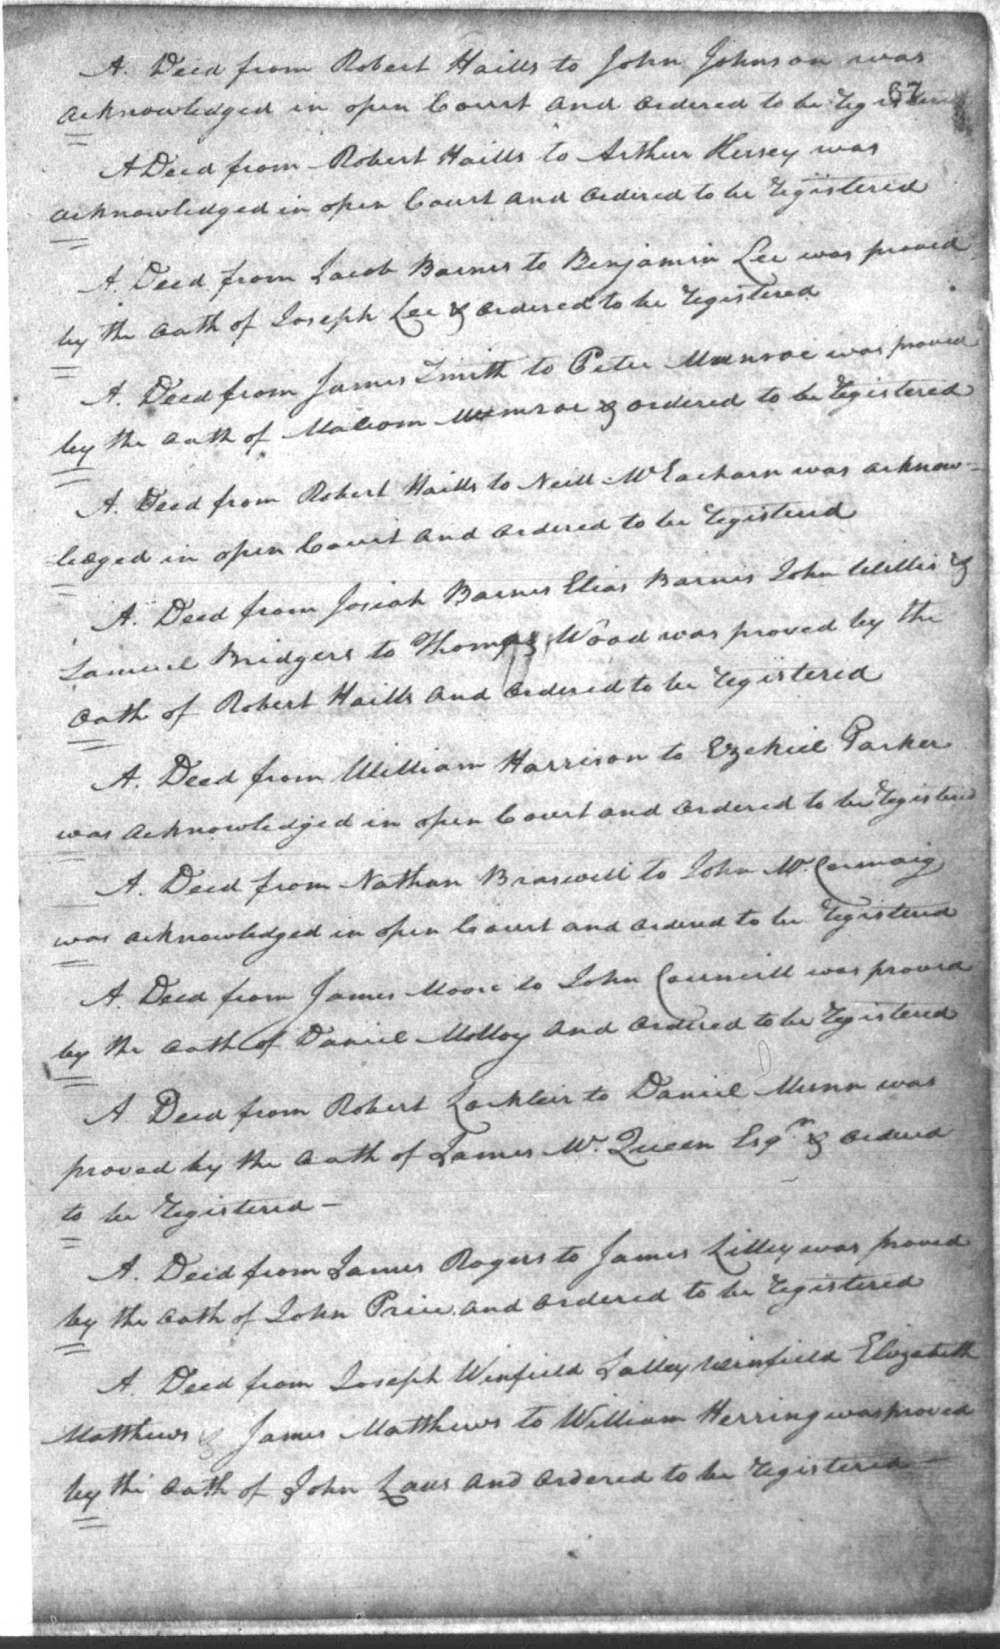 A. Deed from Robert Hails to John Johnson was
67
acknowledged in open Court and ordered to be Registered
A Deed from Robert Hails to Arthur Hersey was
acknowledged in open Court and ordered to be Registered
A. Deed from Jacob Barnes to Benjamin Lee was proved
by the oath of Joseph Lee & ordered to be Registered
A. Deed from James Smith to Peter Munroe was proved
by the oath of Malcom Munroe & ordered to be Registered
A. Deed from Robert Hails to Neill McEacharn was acknow-
ledged in open Court and ordered to be Registered
A. Deed from Josiah Barnes Elias Barnes John Willis &
Samuel Bridgers to Thomas Wood was proved by the
oath of Robert Hails and ordered to be Registered
A. Deed from William Harrison to Ezekiel Parker
was acknowledged in open Court and ordered to be Registered
A. Deed from Nathan Braswell to John McCormaig
was acknowledged in open Court and ordered to be Registered
A. Deed from James Moore to John Councill was proved
by the oath of Daniel Molloy and ordered to be Registered
A Deed from Robert Lockleir to Daniel Munn was
proved by the oath of James McQueen Esqr. & ordered
to be Registered –
A. Deed from James Rogers to James Lilley was proved
by the oath of John Price and ordered to be Registered
A. Deed from Joseph Winfield Salley Winfield Elizabeth
Matthews & James Matthews to William Herring was proved
by the oath of John Laws and ordered to be Registered –